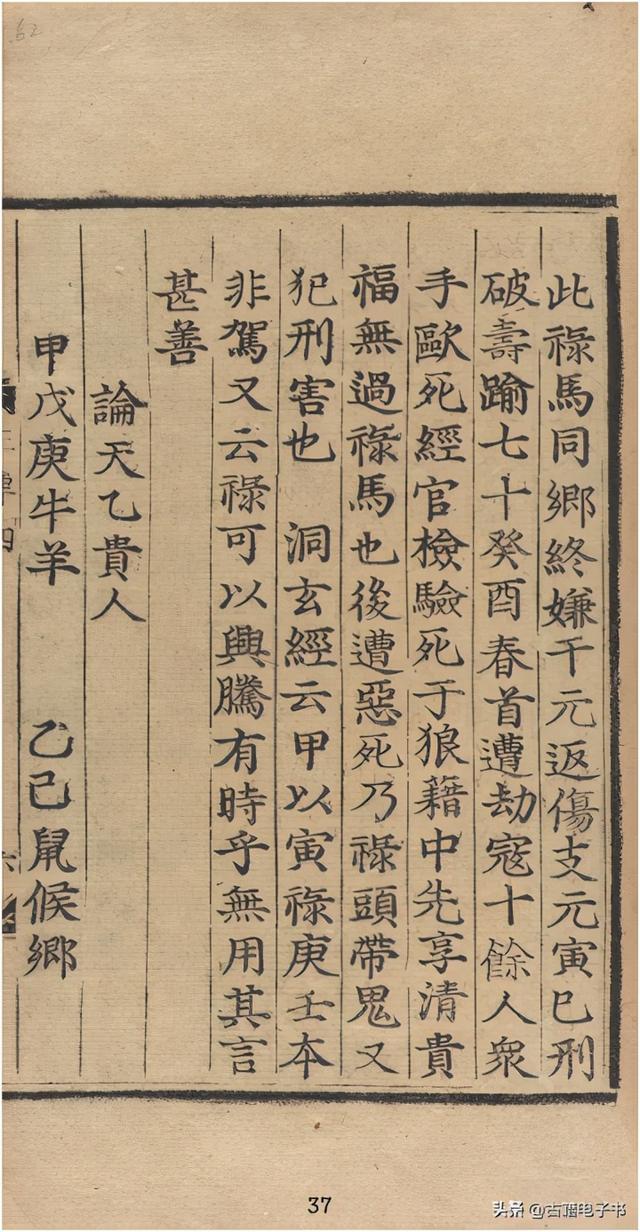 此祿馬同鄉終嫌干元返傷支元寅巳刑
破壽踰七十癸酉春首遭劫寇十餘人衆
手歐死經官檢驗死于狼藉中先享清貴
福無過祿馬也後遭惡死乃祿頭帶鬼又
犯刑害也 洞玄經云甲以寅祿庚壬本
非駕又云祿可以興騰有時乎無用其言
甚善
論天乙貴人
甲戊庚牛羊 乙己鼠候鄉
37
头条 @古籍电子书